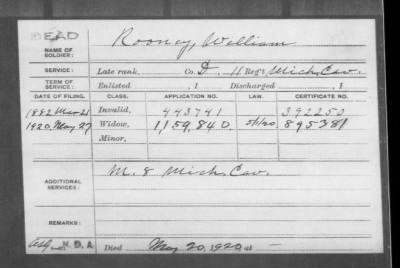 DEAD
NAME OF SOLDIER: Rooney, William
SERVICE: Late rank, Co. D, 11 Reg't Mich. Cav.
TERM OF SERVICE: Enlisted , 1 Discharged , 1
DATE OF FILING. CLASS. APPLICATION NO. LAW. CERTIFICATE NO.
1882 Mar 21 Invalid, 443741 392250
1920 May 27 Widow, 1,159,840. 5/1/20. 895381
Minor,
ADDITIONAL SERVICES: M. 8 Mich. Cav.
REMARKS:
N.D.A. Died May 20, 1920 at —